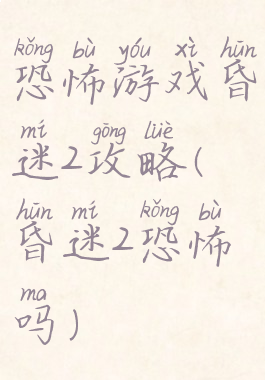 kǒng bù yóu xì hūn
恐怖游戏昏
mí gōng lüè
迷2攻略(
hūn mí kǒng bù
昏迷2恐怖
ma
吗)